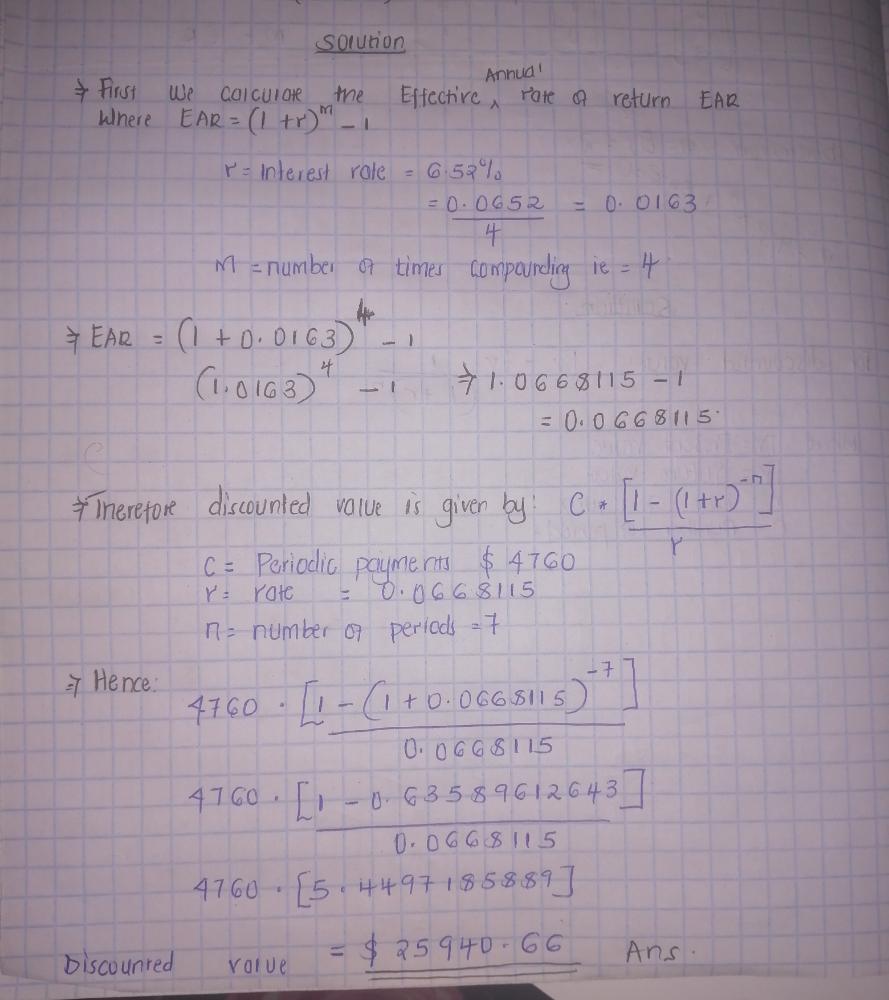 Solution
⇒ First we calculate the Effective ^ Annual rate of return EAR
Where EAR = (1 + r)^m - 1
r = Interest rate = 6.52%
= 0.0652/4 = 0.0163
M = number of times compounding ie = 4
⇒ EAR = (1 + 0.0163)^4 - 1
(1.0163)^4 - 1 ⇒ 1.0668115 - 1
= 0.0668115
⇒ Therefore discounted value is given by: C * [1 - (1+r)^-n]/r
C = Periodic payments $4760
r = rate = 0.0668115
n = number of periods = 7
⇒ Hence:
4760 · [1 - (1 + 0.0668115)^-7]/0.0668115
4760 · [1 - 0.63589612643]/0.0668115
4760 · [5.4497185889]
Discounted value = $25940.66 Ans.